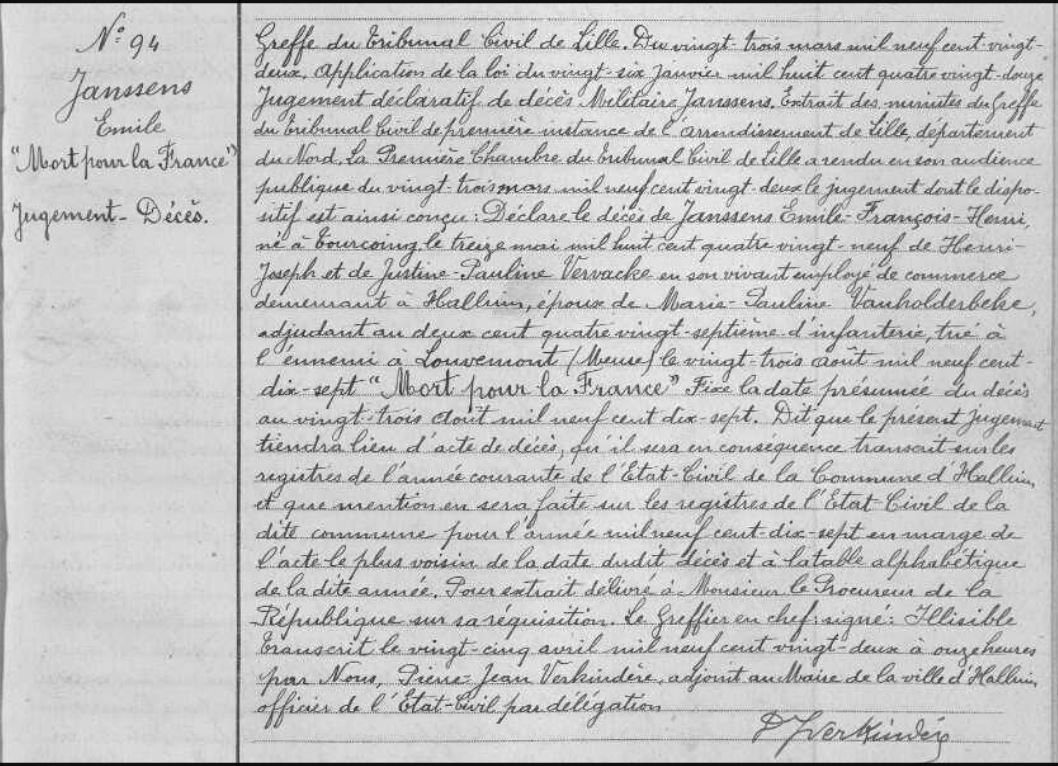 N° 94
Janssens
Emile
"Mort pour la France"
Jugement - Décès.
Greffe du Tribunal Civil de Lille. Du vingt-trois mars mil neuf cent vingt-
deux. Application de la loi du vingt-six Janvier mil huit cent quatre vingt-douze
Jugement déclaratif de décès Militaire Janssens. Extrait des minutes du Greffe
du Tribunal Civil de première instance de l'arrondissement de Lille, département
du Nord. La Première Chambre du Tribunal Civil de Lille a rendu en son audience
publique du vingt-trois mars mil neuf cent vingt-deux le jugement dont le dispo-
sitif est ainsi conçu : Déclare le décès de Janssens Emile-François-Henri,
né à Tourcoing le treize mai mil huit cent quatre vingt-neuf de Henri-
Joseph et de Justine-Pauline Vervacke en son vivant employé de commerce
demeurant à Halluin, époux de Marie-Pauline Vanholderbeke,
adjudant au deux cent quatre vingt-septième d'infanterie, tué à
l'ennemi à Louvemont (Meuse) le vingt-trois août mil neuf cent-
dix-sept "Mort pour la France" Fixe la date présumée du décès
au vingt-trois août mil neuf cent dix-sept. Dit que le présent jugement
tiendra lieu d'acte de décès, qu'il sera en conséquence transcrit sur les
registres de l'année courante de l'Etat-Civil de la Commune d'Halluin,
et que mention en sera faite sur les registres de l'Etat-Civil de la
dite commune pour l'année mil neuf cent-dix-sept en marge de
l'acte le plus voisin de la date dudit décès et à la table alphabétique
de la dite année. Pour extrait délivré à Monsieur le Procureur de la
République sur sa réquisition. Le Greffier en chef : signé : Illisible
Transcrit le vingt-cinq avril mil neuf cent vingt-deux à onze heures
par Nous, Pierre-Jean Verkindère, adjoint au Maire de la ville d'Halluin,
officier de l'Etat-Civil par délégation
P J Verkindère